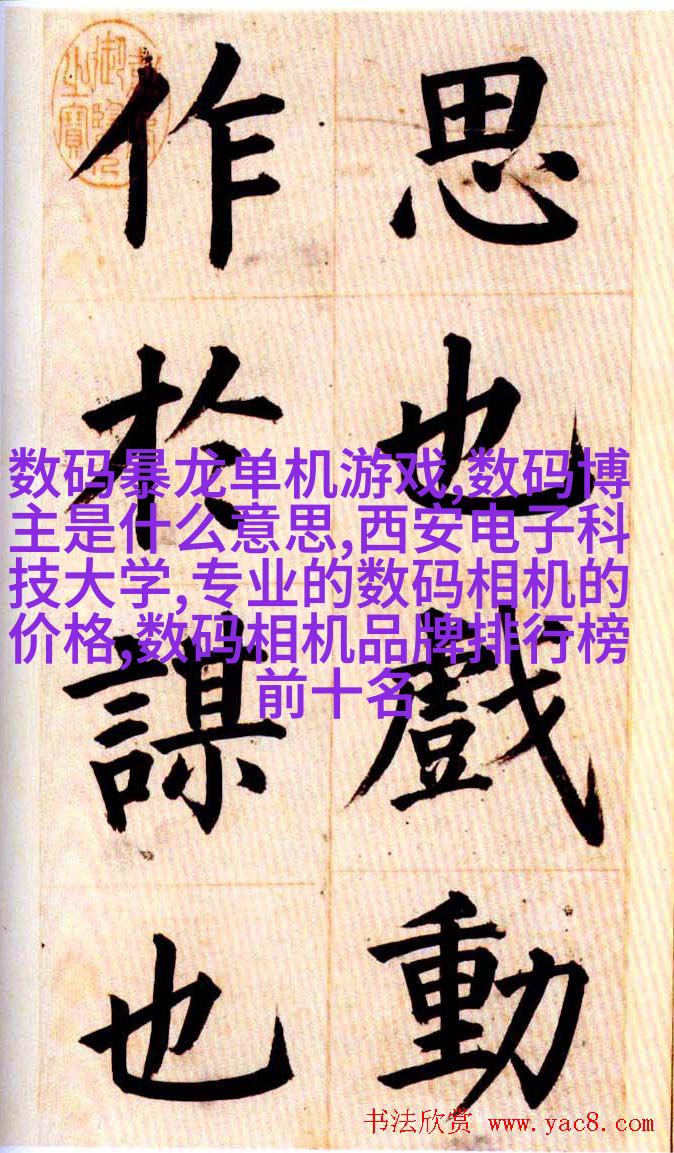 思也戲動
作於謀也
数码暴龙单机游戏,数码博
主是什么意思,西安电子科
技大学,专业的数码相机的
价格,数码相机品牌排行榜
前十名
书法欣赏 www.yac8.com